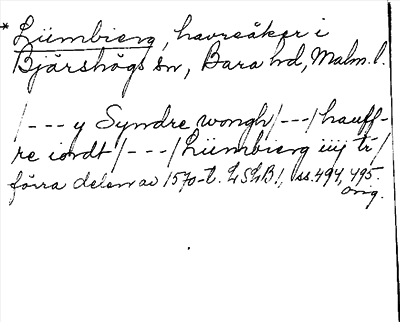 * Liimbierg, havreåker i
Bjärshögs sn, Bara hd, Malm. l.
/--- y Syndre wongh/---/hauff-
re iordt/---/Liimbierg iiij tr/
förra delen av 1570-t. LSLB 1, ss. 494, 495.
Orig.